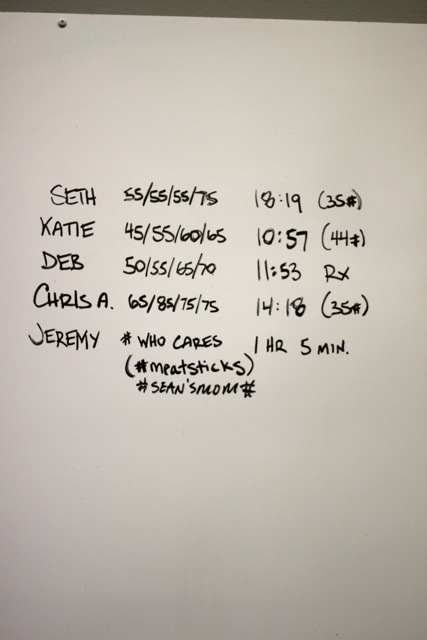 SETH 55/55/55/75 18:19 (35#)
KATIE 45/55/60/65 10:57 (44#)
DEB 50/55/65/70 11:53 Rx
CHRIS A. 65/85/75/75 14:18 (35#)
JEREMY # WHO CARES 1 HR 5 MIN.
(#meatsticks)
#SEAN'SMOM#